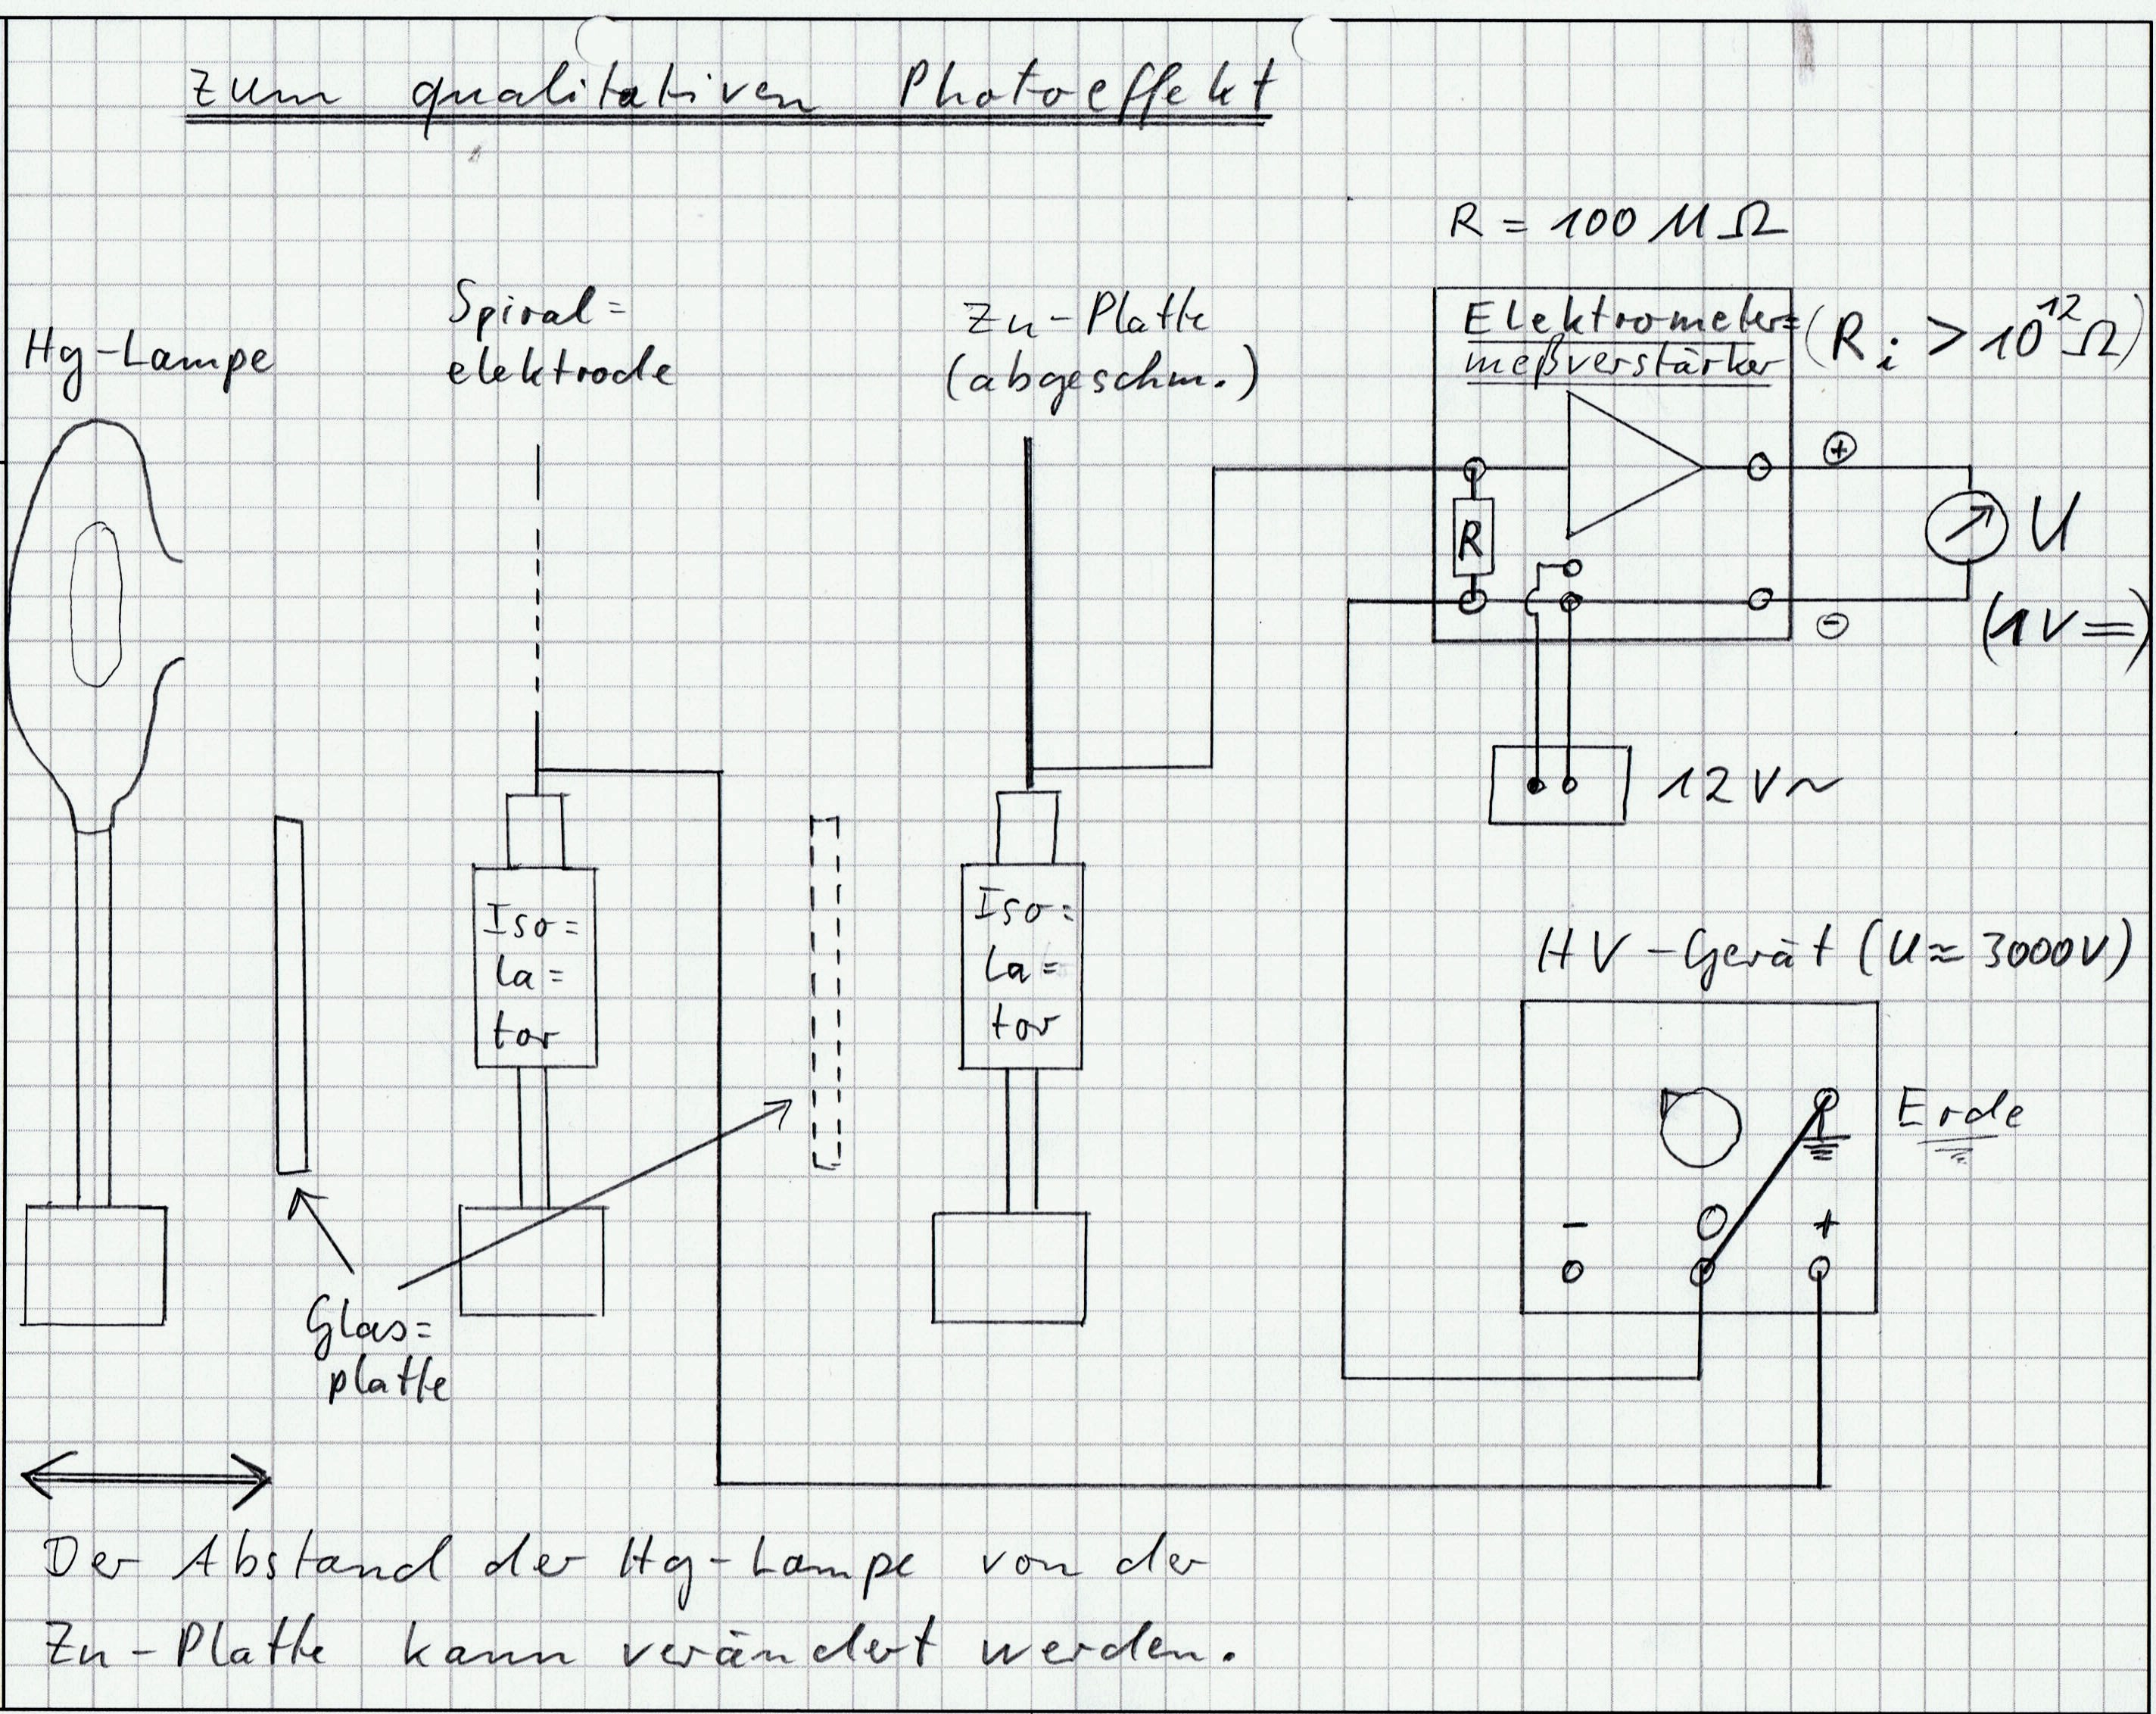 Zum qualitativen Photoeffekt
R = 100 MΩ
Hg-Lampe
Spiral=
elektrode
Zn-Platte
(abgeschm.)
Elektrometer=
meßverstärker
(Ri > 10¹²Ω)
R
+
U
-
(1V=)
12V~
Iso=
la=
tor
Iso=
la=
tor
HV-Gerät (U≈3000V)
Erde
- 0 +
Glas=
platte
Der Abstand der Hg-Lampe von der
Zn-Platte kann verändert werden.